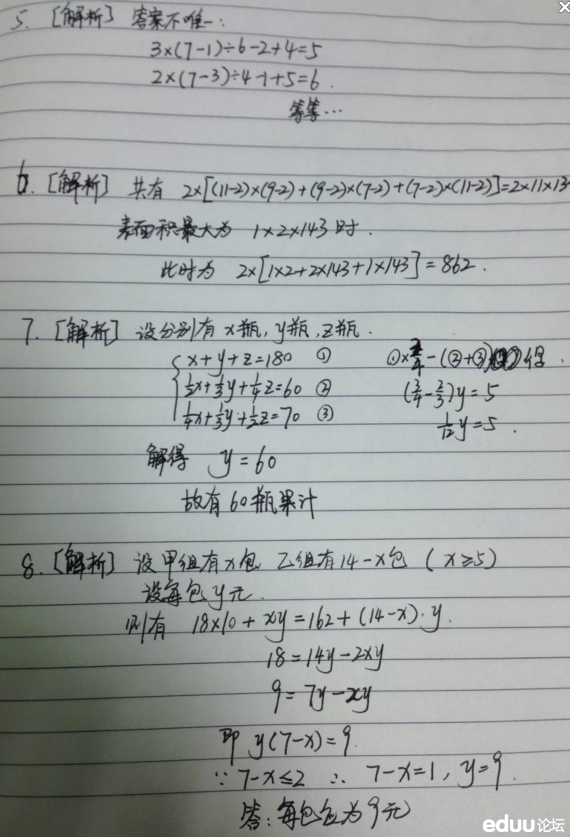 5. [解析] 答案不唯一:
3×(7-1)÷6-2+4=5
2×(7-3)÷4-1+5=6
等等...
6. [解析] 共有 2×[(11-2)×(9-2)+(9-2)×(7-2)+(7-2)×(11-2)]=2×11×13
表面积最大为 1×2×143时.
此时为 2×[1×2+2×143+1×143]=862.
7. [解析] 设分别有x瓶,y瓶,z瓶.
x+y+z=180 ①
½x+⅓y+¼z=60 ②
¼x+⅓y+½z=70 ③
①×¾-(②+③) 得
(¾-⅔)y=5
1/12 y=5.
解得 y=60
故有60瓶果汁
8. [解析] 设甲组有x包 乙组有14-x包 (x≥5)
设每包y元.
则有 18×10+xy=162+(14-x)·y.
18=14y-2xy
9=7y-xy
即 y(7-x)=9.
∵7-x≤2 ∴ 7-x=1, y=9.
答:每包包为9元
eduu论坛